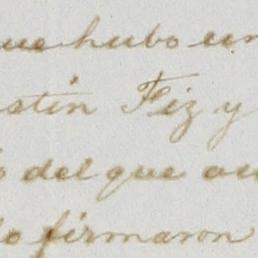 que hubo en
stin Fiz y
del que au
lo firmaron